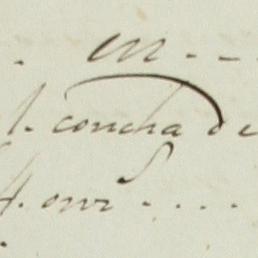 . en - - -
l. concha de
4. onz. . . . .